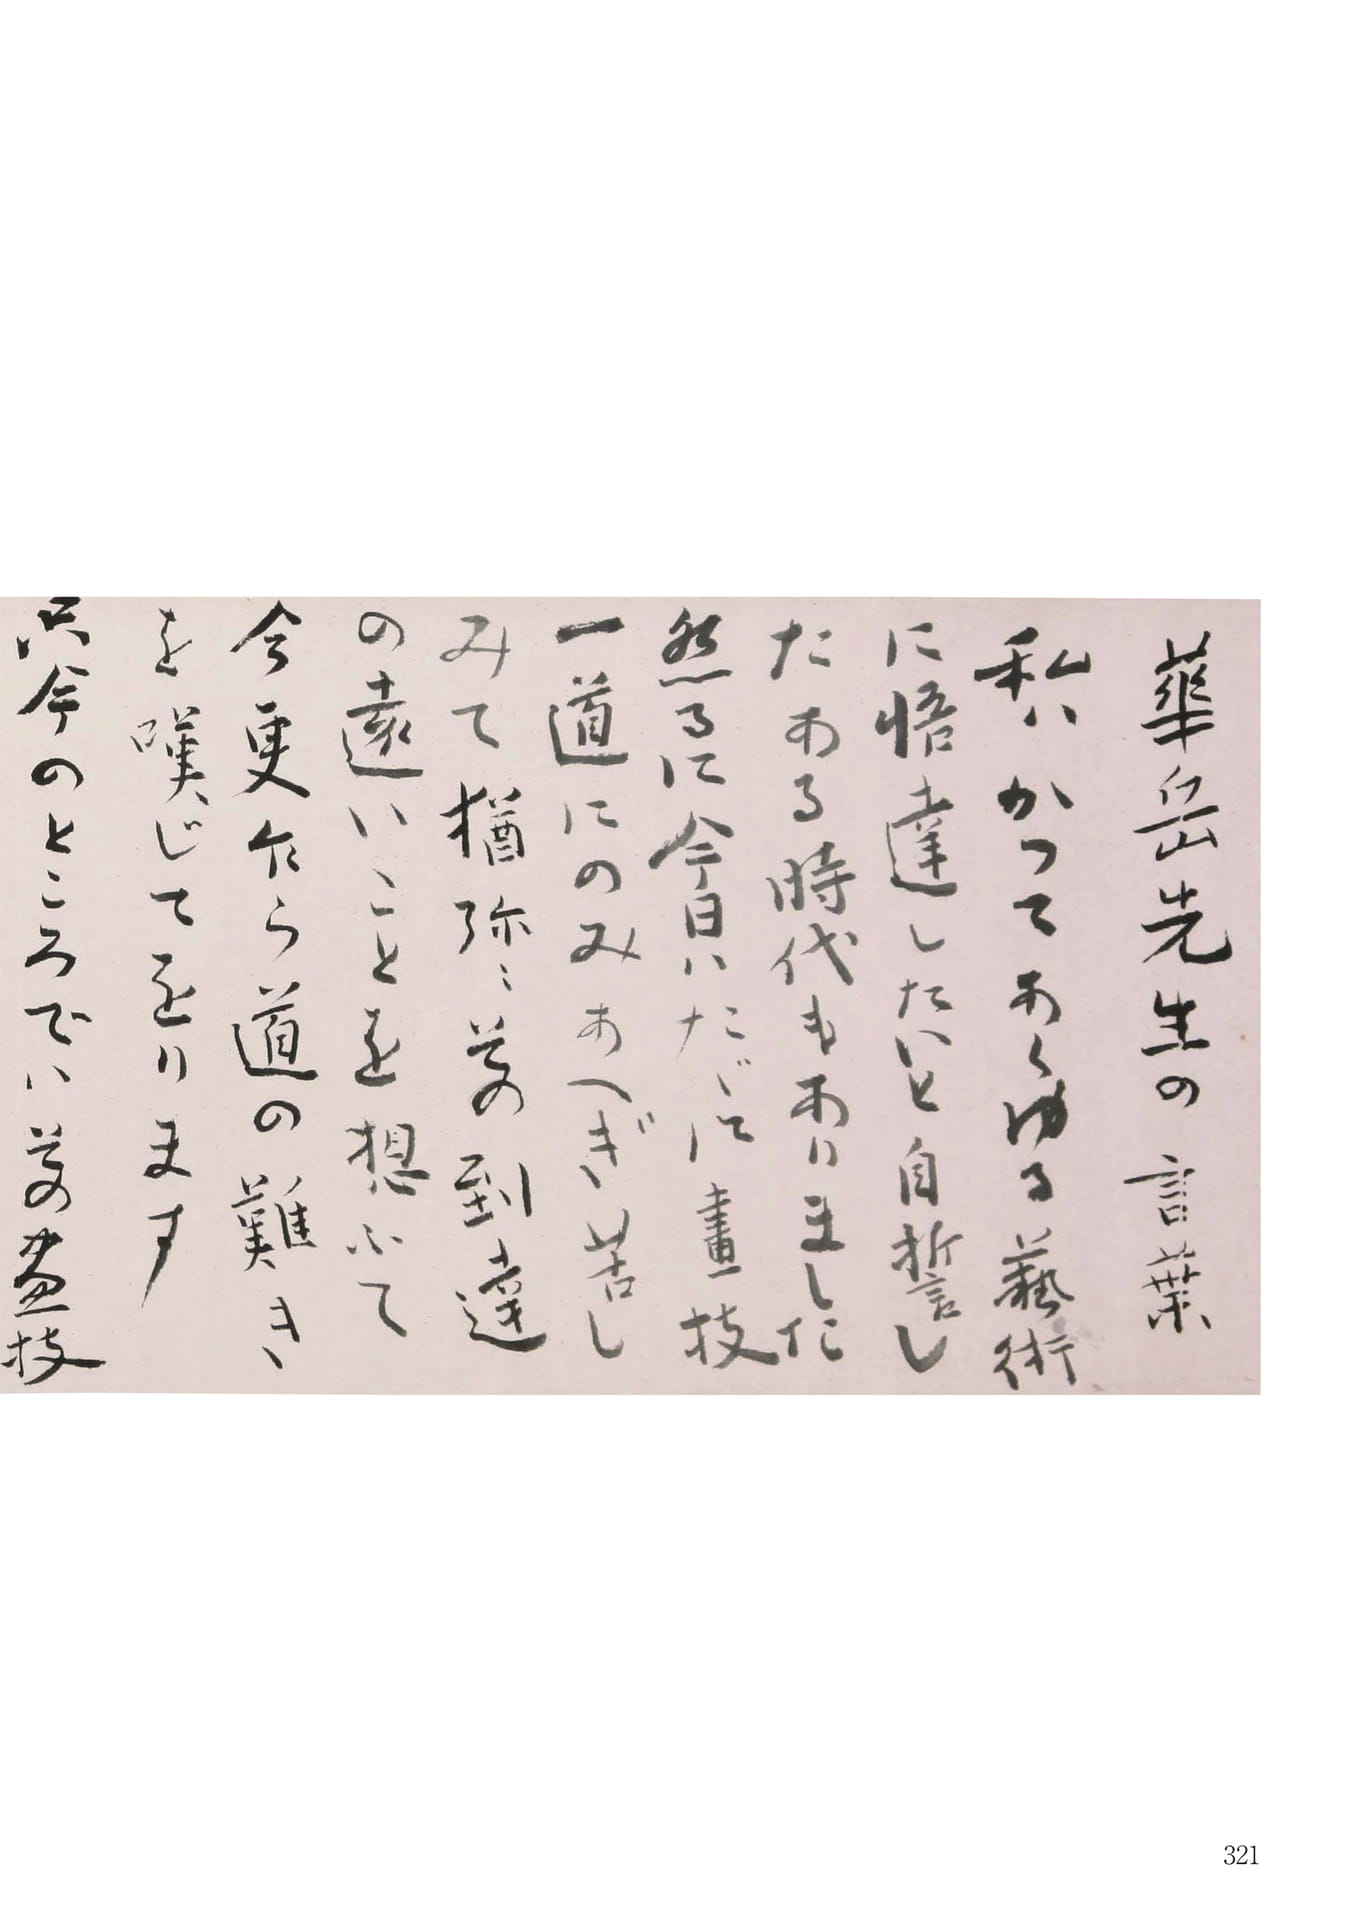 華岳先生の言葉
私ハかつてあらゆる藝術
に悟達したいと自誓し
たある時代もありました
然るに今日ハたゞに畫技
一道にのみあへぎ苦し
みて猶弥〻其の到達
の遠いことを想ふて
今更乍ら道の難き
を嘆じてをります
只今のところでハ其の画技
321